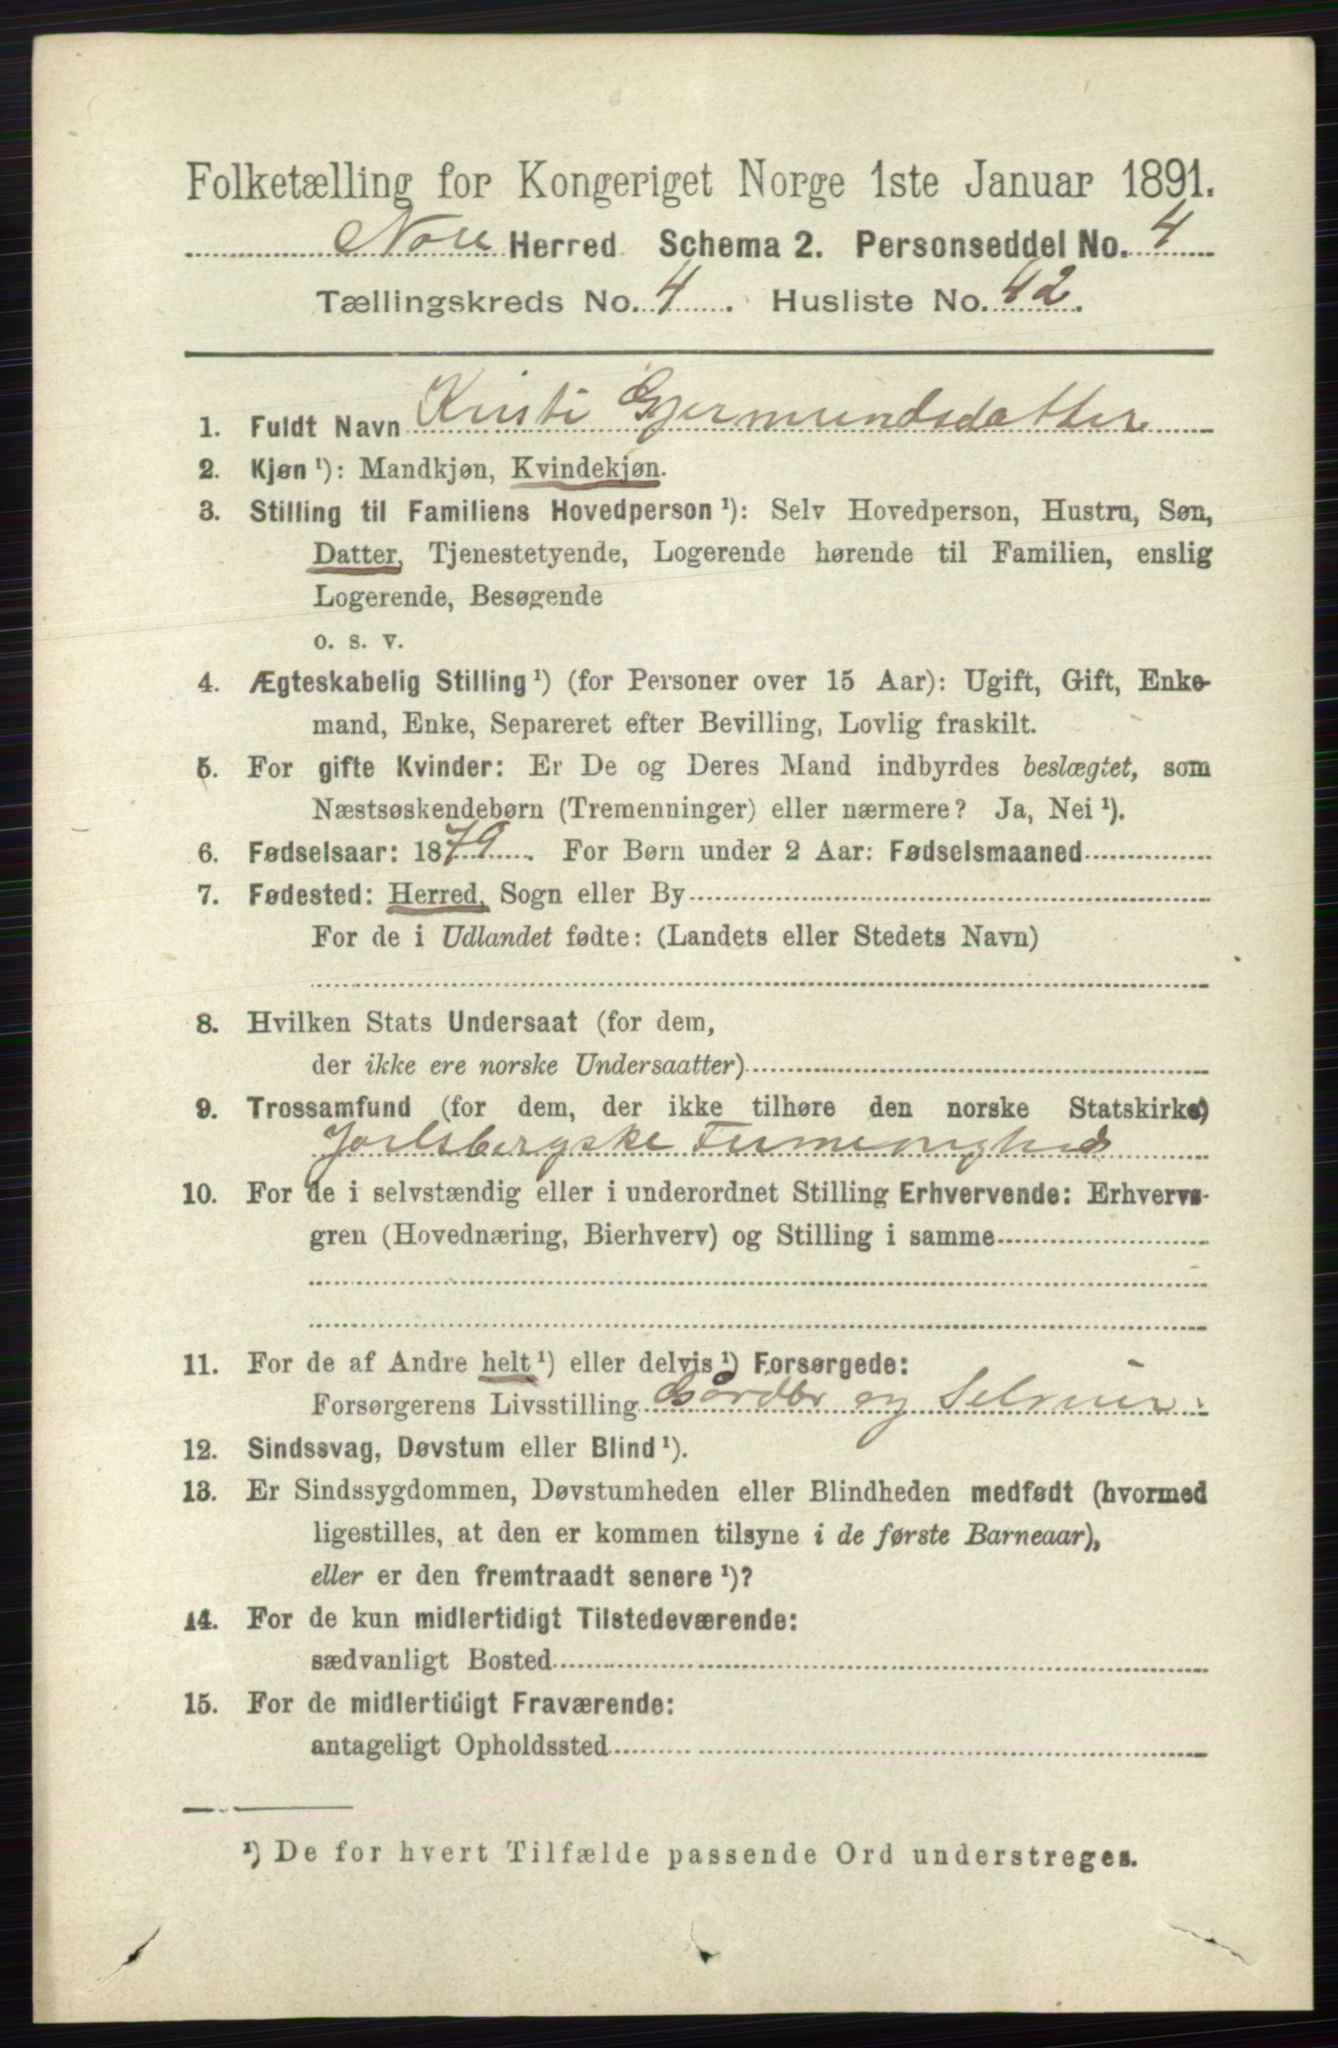 Folketælling for Kongeriget Norge 1ste Januar 1891.
Nore Herred Schema 2. Personseddel No. 4
Tællingskreds No. 4. Husliste No. 42.
1. Fuldt Navn Kristi Gjermundsdatter
2. Kjøn ¹): Mandkjøn, Kvindekjøn.
3. Stilling til Familiens Hovedperson ¹): Selv Hovedperson, Hustru, Søn,
Datter, Tjenestetyende, Logerende hørende til Familien, enslig
Logerende, Besøgende
o. s. v.
4. Ægteskabelig Stilling ¹) (for Personer over 15 Aar): Ugift, Gift, Enke-
mand, Enke, Separeret efter Bevilling, Lovlig fraskilt.
5. For gifte Kvinder: Er De og Deres Mand indbyrdes beslægtet, som
Næstsøskendebørn (Tremenninger) eller nærmere? Ja, Nei ¹).
6. Fødselsaar: 1879. For Børn under 2 Aar: Fødselsmaaned
7. Fødested: Herred, Sogn eller By
For de i Udlandet fødte: (Landets eller Stedets Navn)
8. Hvilken Stats Undersaat (for dem,
der ikke ere norske Undersaatter)
9. Trossamfund (for dem, der ikke tilhøre den norske Statskirke)
Jarlsbergske Frimenighed
10. For de i selvstændig eller i underordnet Stilling Erhvervende: Erhvervs-
gren (Hovednæring, Bierhverv) og Stilling i samme
11. For de af Andre helt ¹) eller delvis ¹) Forsørgede:
Forsørgerens Livsstilling Gårdbr og Selveier.
12. Sindssvag, Døvstum eller Blind ¹).
13. Er Sindssygdommen, Døvstumheden eller Blindheden medfødt (hvormed
ligestilles, at den er kommen tilsyne i de første Barneaar),
eller er den fremtraadt senere ¹)?
14. For de kun midlertidigt Tilstedeværende:
sædvanligt Bosted
15. For de midlertidigt Fraværende:
antageligt Opholdssted
¹) De for hvert Tilfælde passende Ord understreges.